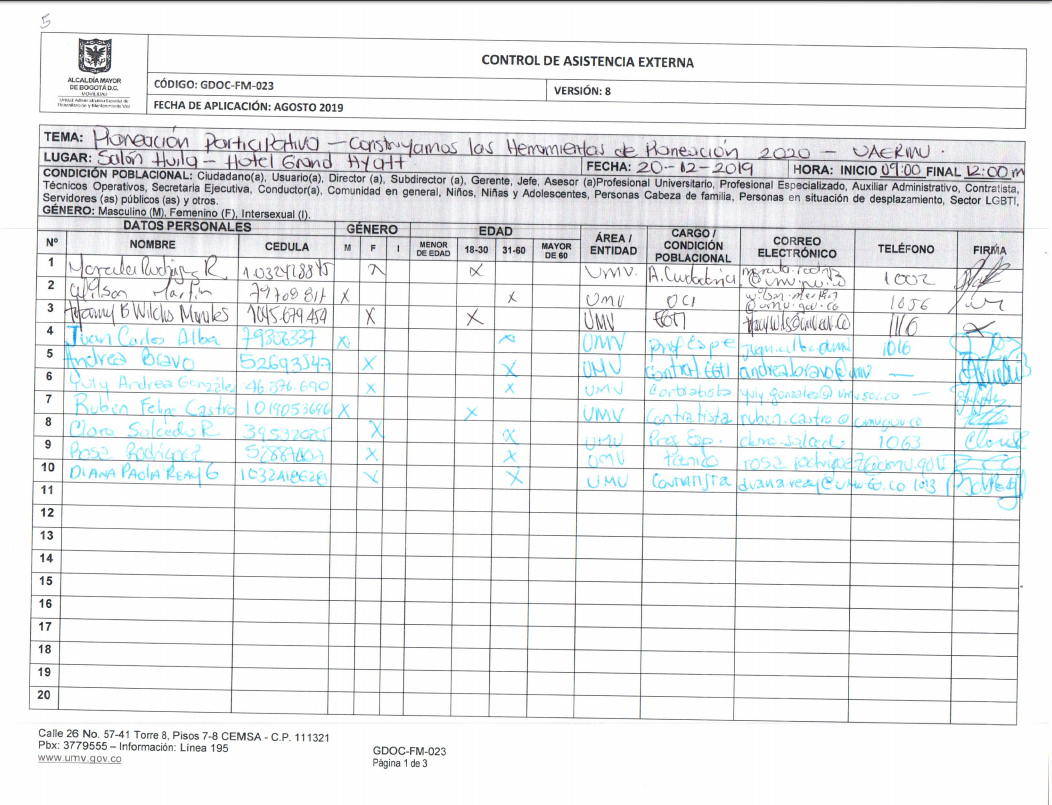 5
ALCALDÍA MAYOR
DE BOGOTÁ D.C.
MOVILIDAD
Unidad Administrativa Especial de
Rehabilitación y Mantenimiento Vial
CONTROL DE ASISTENCIA EXTERNA
CÓDIGO: GDOC-FM-023
VERSIÓN: 8
FECHA DE APLICACIÓN: AGOSTO 2019
TEMA: Planeación participativa - Construyamos las Herramientas de Planeación 2020 - UAERMV.
LUGAR: Salón Huila - Hotel Grand Hyatt. FECHA: 20-12-2019 HORA: INICIO 09:00 FINAL 12:00 m
CONDICIÓN POBLACIONAL: Ciudadano(a), Usuario(a), Director (a), Subdirector (a), Gerente, Jefe, Asesor (a)Profesional Universitario, Profesional Especializado, Auxiliar Administrativo, Contratista,
Técnicos Operativos, Secretaria Ejecutiva, Conductor(a), Comunidad en general, Niños, Niñas y Adolescentes, Personas Cabeza de familia, Personas en situación de desplazamiento, Sector LGBTI,
Servidores (as) públicos (as) y otros.
GÉNERO: Masculino (M), Femenino (F), Intersexual (I).
DATOS PERSONALES GÉNERO EDAD ÁREA / ENTIDAD CARGO / CONDICIÓN POBLACIONAL CORREO ELECTRÓNICO TELÉFONO FIRMA
Nº NOMBRE CEDULA M F I MENOR DE EDAD 18-30 31-60 MAYOR DE 60
1 R X X UMV. 1002
2 Wilson Martin 79709817 X X UMV OCI wilson.martin@umv.gov.co 1056
3 B Wilches 1045679454 X X UMV EGTI 1116
4 Juan Carlos Alba 79306337 X X UMV Prof Espe 1016
5 Andrea Bravo 52693547 X X UMV Contrat EGTI andrea.bravo@umv —
6 Yuly Andrea González 46376690 X X UMV Contratista yuly.gonzalez@umv.gov.co —
7 Ruben Felipe Castro 1019053696 X X UMV Contratista ruben.castro@umv.gov.co
8 Clara Salcedo R 39532025 X X UMV Prof Esp. clara.salcedo 1063
9 Rosa Rodriguez X X UMV tecnico rosa.rodriguez@umv.gov
10 DIANA PAOLA REAY G 1032418628 X X UMV Contratista 1013
11
12
13
14
15
16
17
18
19
20
Calle 26 No. 57-41 Torre 8, Pisos 7-8 CEMSA - C.P. 111321
Pbx: 3779555 – Información: Línea 195
www.umv.gov.co
GDOC-FM-023
Página 1 de 3